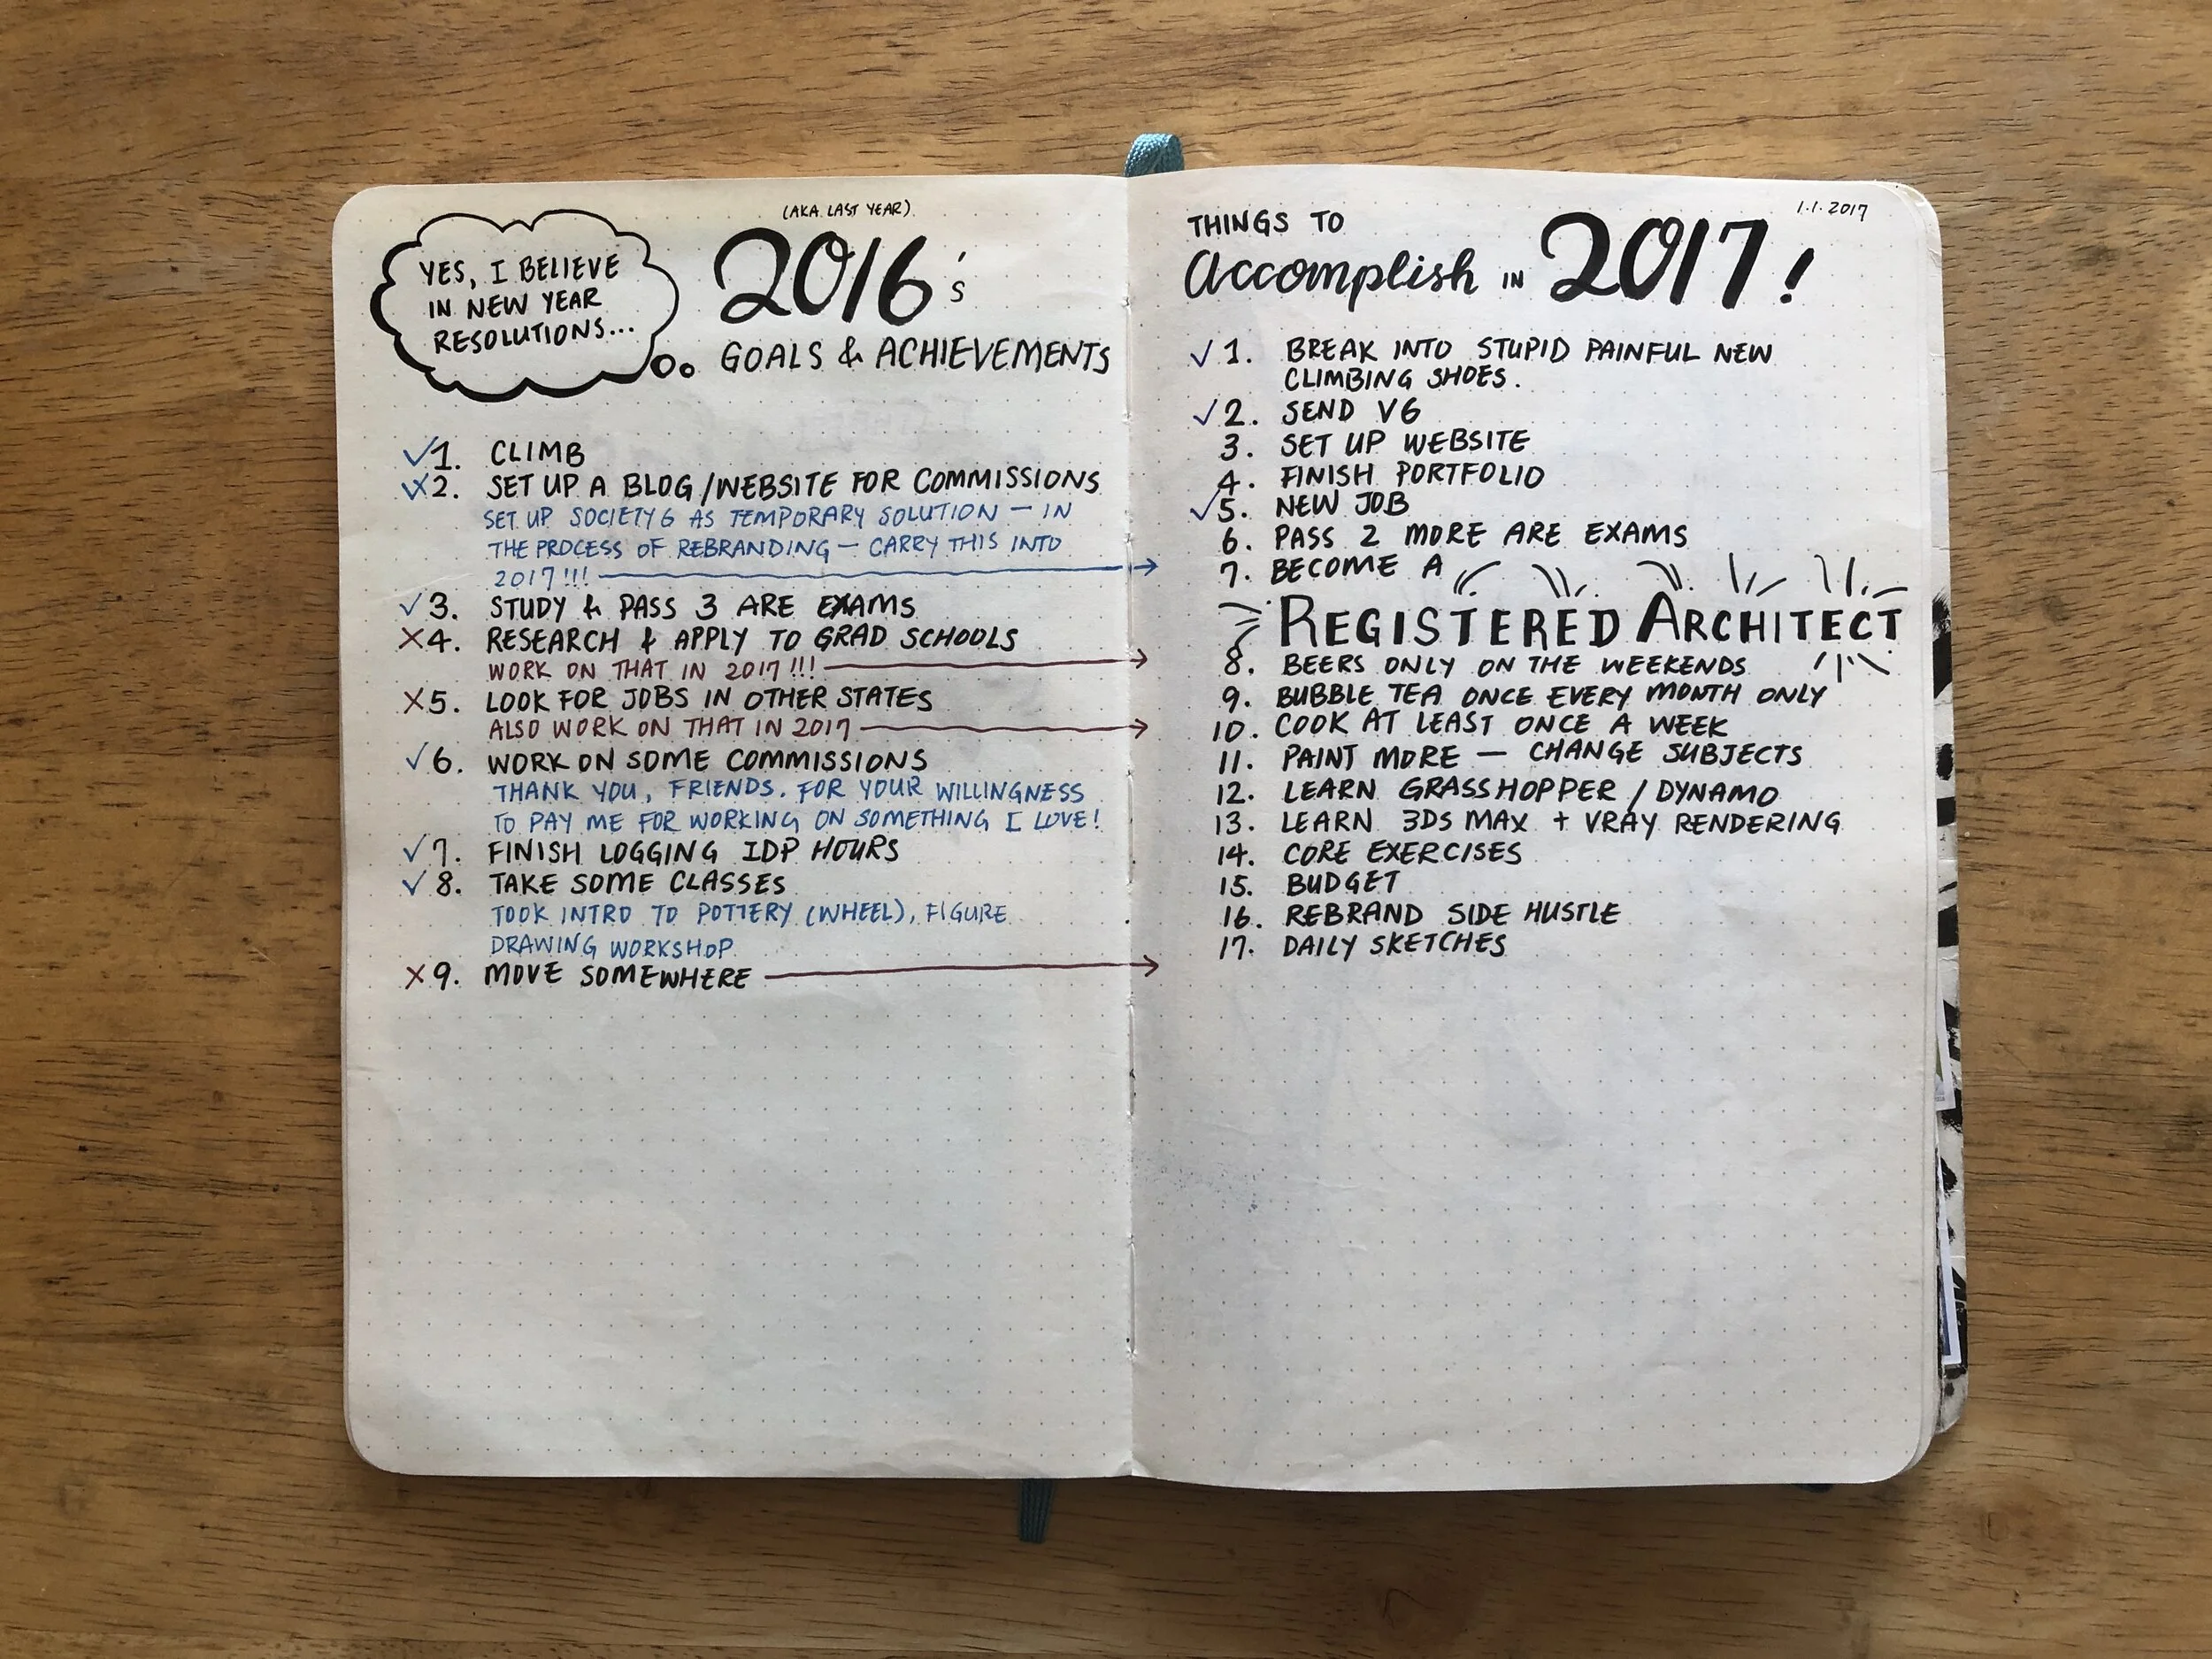 YES, I BELIEVE
IN NEW YEAR
RESOLUTIONS...
(AKA LAST YEAR)
2016's
GOALS & ACHIEVEMENTS
✓1. CLIMB
✓X2. SET UP A BLOG/WEBSITE FOR COMMISSIONS
SET UP SOCIETY6 AS TEMPORARY SOLUTION — IN
THE PROCESS OF REBRANDING — CARRY THIS INTO
2017!!! →
✓3. STUDY & PASS 3 ARE EXAMS
X4. RESEARCH & APPLY TO GRAD SCHOOLS
WORK ON THAT IN 2017!!! →
X5. LOOK FOR JOBS IN OTHER STATES
ALSO WORK ON THAT IN 2017 →
✓6. WORK ON SOME COMMISSIONS
THANK YOU, FRIENDS. FOR YOUR WILLINGNESS
TO PAY ME FOR WORKING ON SOMETHING I LOVE!
✓7. FINISH LOGGING IDP HOURS
✓8. TAKE SOME CLASSES
TOOK INTRO TO POTTERY (WHEEL), FIGURE
DRAWING WORKSHOP
X9. MOVE SOMEWHERE →
1.1.2017
THINGS TO
Accomplish IN 2017!
✓1. BREAK INTO STUPID PAINFUL NEW
CLIMBING SHOES.
✓2. SEND V6
3. SET UP WEBSITE
4. FINISH PORTFOLIO
✓5. NEW JOB
6. PASS 2 MORE ARE EXAMS
7. BECOME A
REGISTERED ARCHITECT
8. BEERS ONLY ON THE WEEKENDS
9. BUBBLE TEA ONCE EVERY MONTH ONLY
10. COOK AT LEAST ONCE A WEEK
11. PAINT MORE — CHANGE SUBJECTS
12. LEARN GRASSHOPPER / DYNAMO
13. LEARN 3DS MAX + VRAY RENDERING
14. CORE EXERCISES
15. BUDGET
16. REBRAND SIDE HUSTLE
17. DAILY SKETCHES